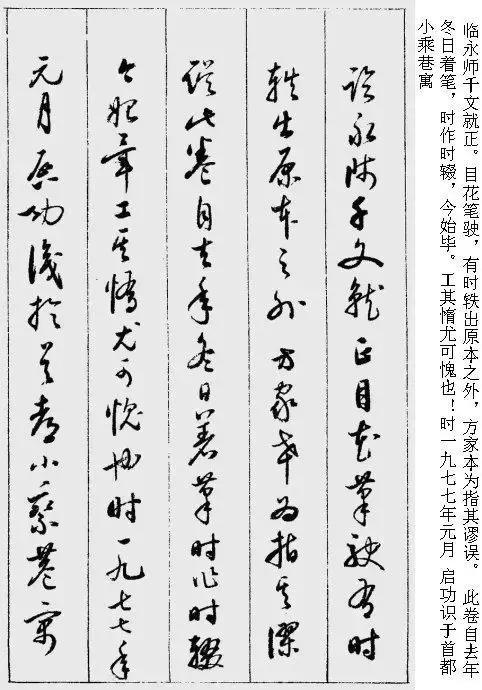 临永师千文就正。目花笔驶，有时轶出原本之外，方家本为指其谬误。 此卷自去年
冬日着笔，时作时辍，今始毕。工其惰尤可愧也！时一九七七年元月 启功识于首都
小乘巷寓
临永师千文就正目花笔驶有时
轶出原本之外方家幸为指其谬
误此卷自去年冬日着笔时作时辍
今始毕工其惰尤可愧也时一九七七年
元月启功识于首都小乘巷寓